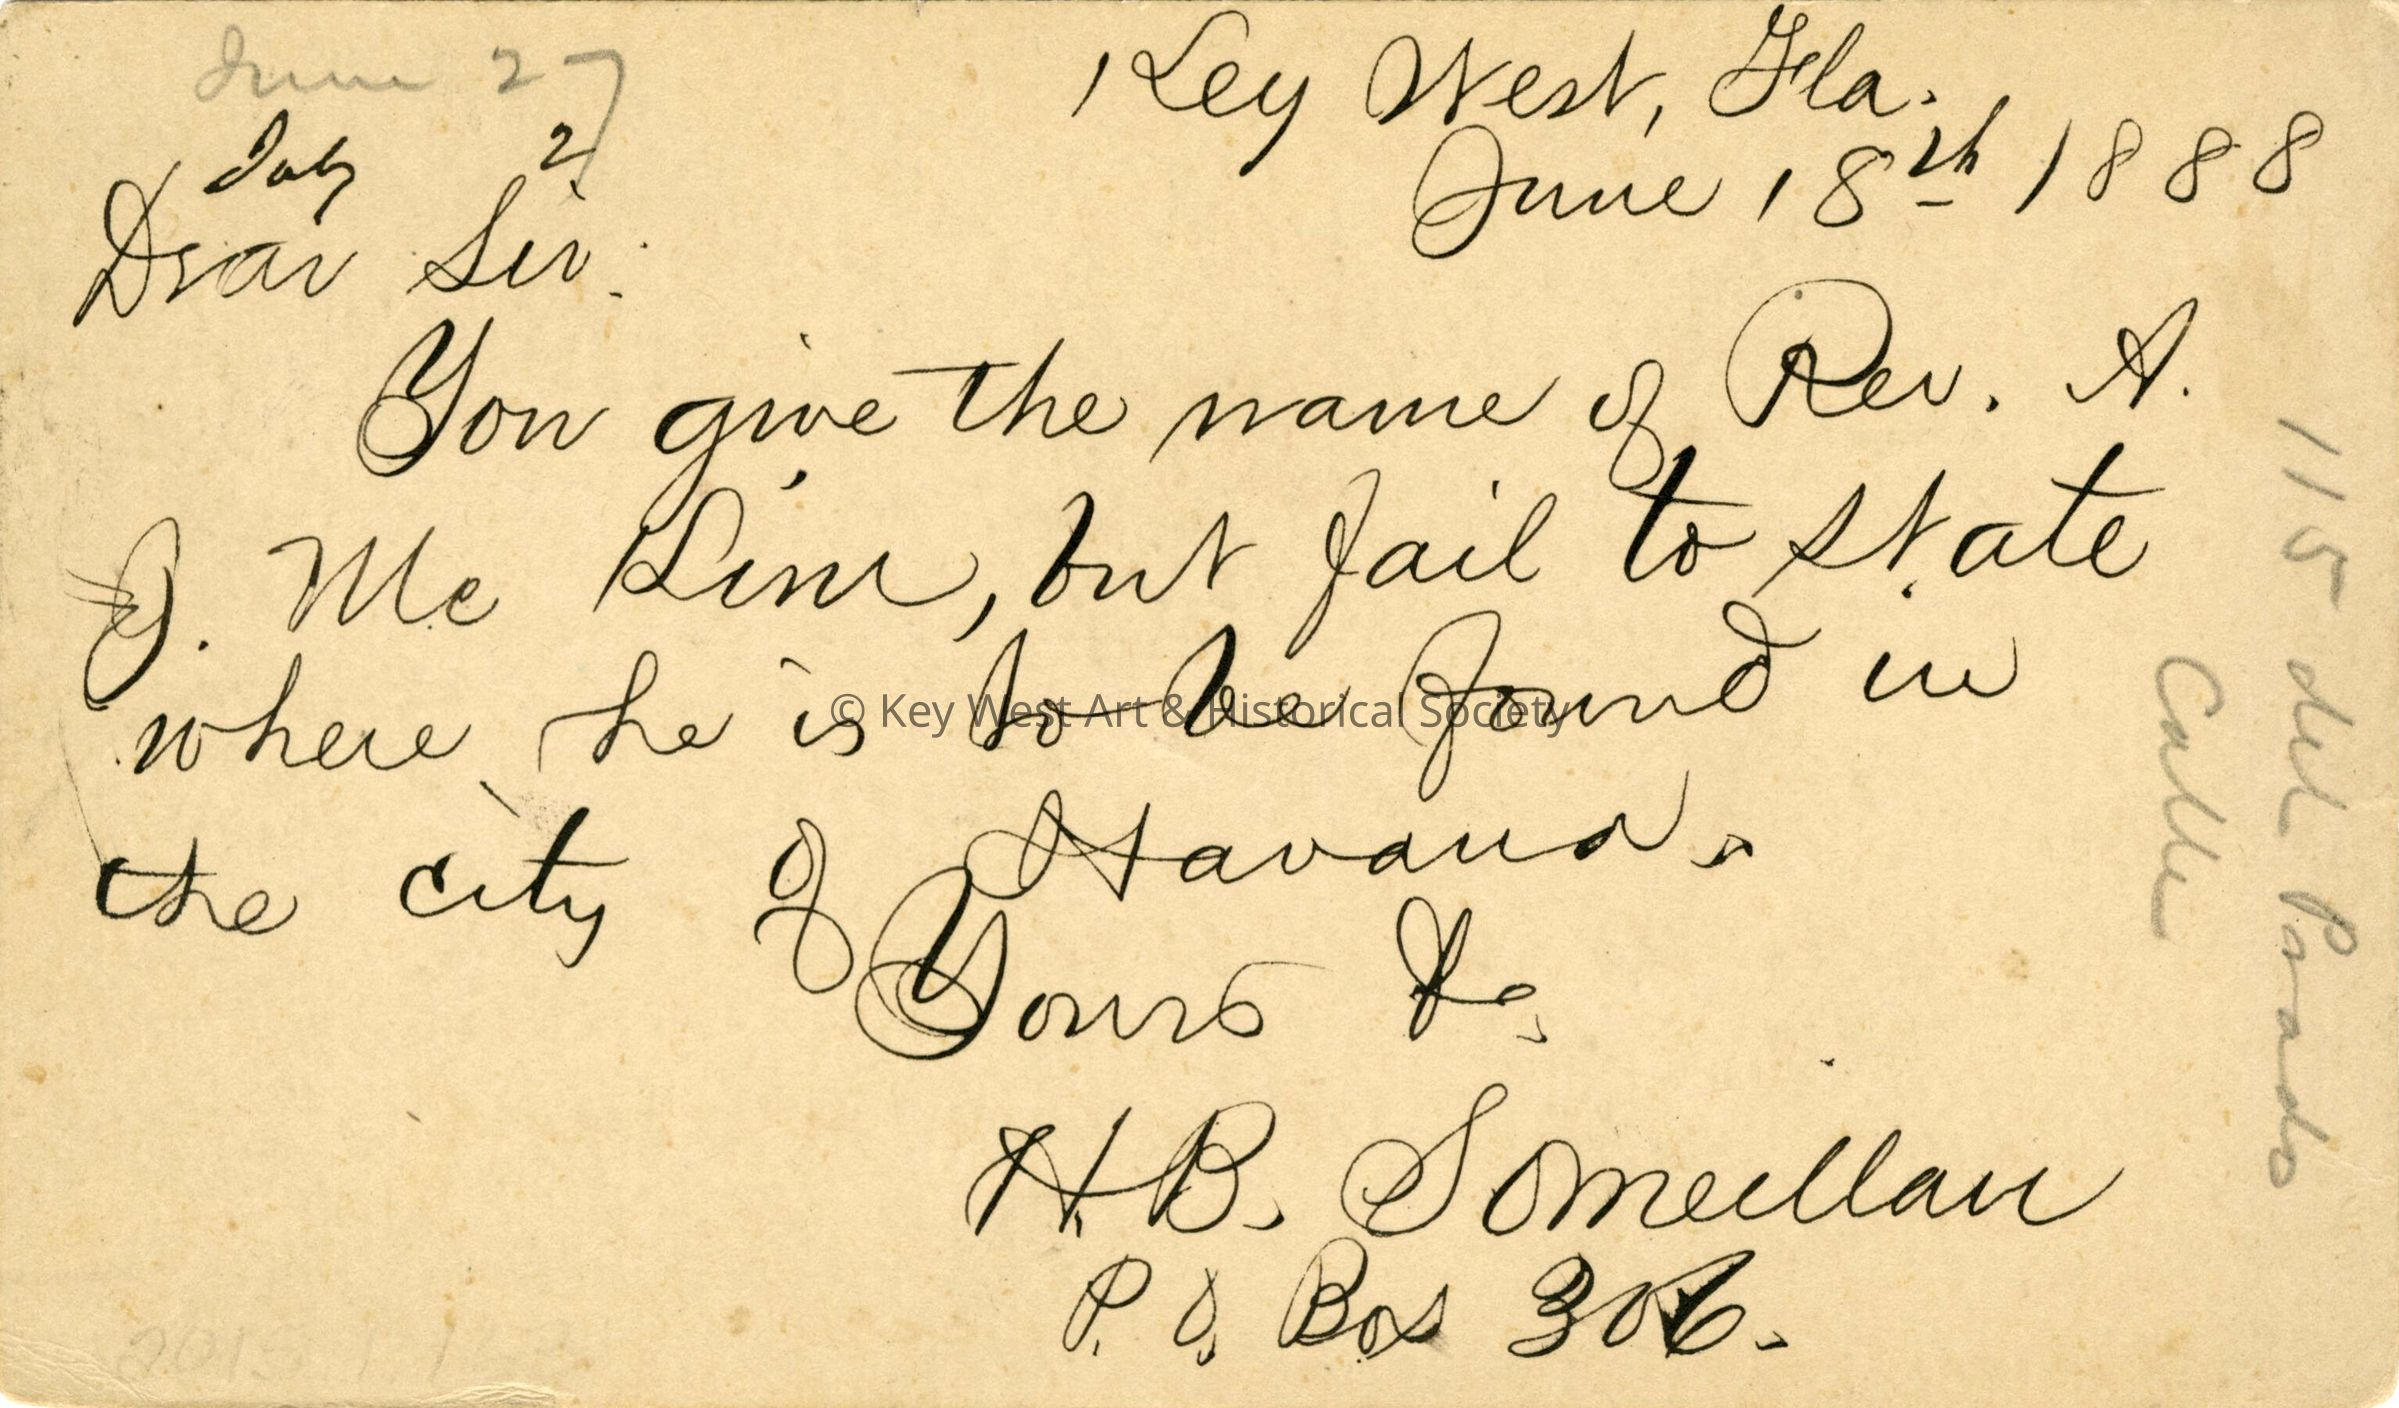 June 27
July 2
Key West, Fla.
June 18th 1888
Dear Sir:
You give the name of Rev. A.
J. Mc Lim, but fail to state
where he is to be found in
the city of Havana.
Yours &c,
H. B. Someillan
P. O. Box 306.
115 del Prado
Calle
© Key West Art & Historical Society